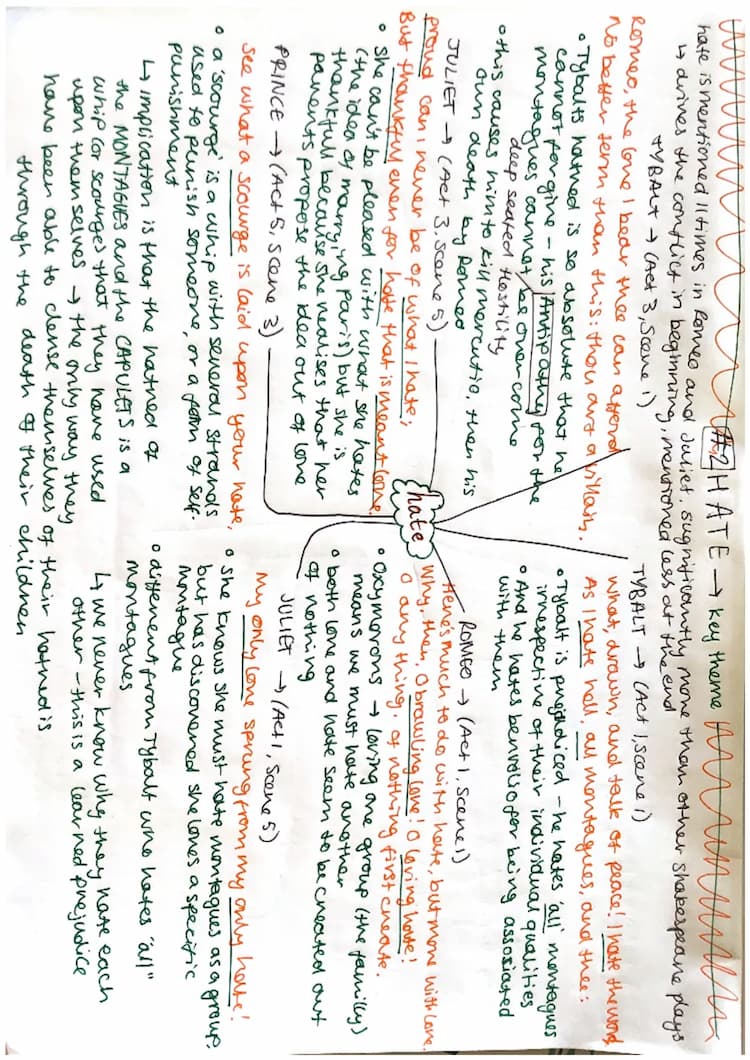 #2 HATE → key theme
hate is mentioned 11 times in Romeo and Juliet, significantly more than other Shakespeare plays
↳ drives the conflict in beginning, mentioned less at the end
TYBALT → (Act 3, Scene 1)
Romeo, the love I bear thee can afford
No better term than this: thou art a villain.
• Tybalts hatred is so absolute that he
cannot forgive - his Antipathy for the
montagues cannot be overcome
deep seated hostility
• this causes him to kill mercutio, then his
own death by Romeo
JULIET → (Act 3, Scene 5)
proud can I never be of what I hate;
But thankful even for hate that is meant love.
• She can't be pleased with what she hates
(the idea of marrying paris) but she is
thankfull because she realises that her
parents propose the idea out of love
PRINCE → (Act 5, Scene 3)
See what a scourge is laid upon your hate,
• a 'scourge' is a whip with several strands
used to punish someone, or a form of self-
punishment
↳ implication is that the hatred of
the MONTAGUES and the CAPULETS is a
whip (or scourge) that they have used
upon themselves → the only way they
have been able to clense themselves of their hatred is
through the death of their children
hate
TYBALT → (Act 1, Scene 1)
What, drawn, and talk of peace! I hate the word
As I hate hell, all montagues, and thee:
• Tybalt is prejudiced - he hates 'all' montagues
irrespective of their individual qualities
• And he hates benvolio for being associated
with them
ROMEO → (Act 1, Scene 1)
Here's much to do with hate, but more with love.
Why, then, O brawling love! O loving hate!
O any thing, of nothing first create.
• Oxymorons → loving one group (the familly)
means we must hate another
• both love and hate seem to be created out
of nothing
JULIET → (Act 1, Scene 5)
My only love sprung from my only hate!
• she knows she must hate montagues as a group,
but has discovered she loves a specific
montague
• different from Tybalt who hates "all"
montagues
↳ we never know why they hate each
other - this is a learned prejudice